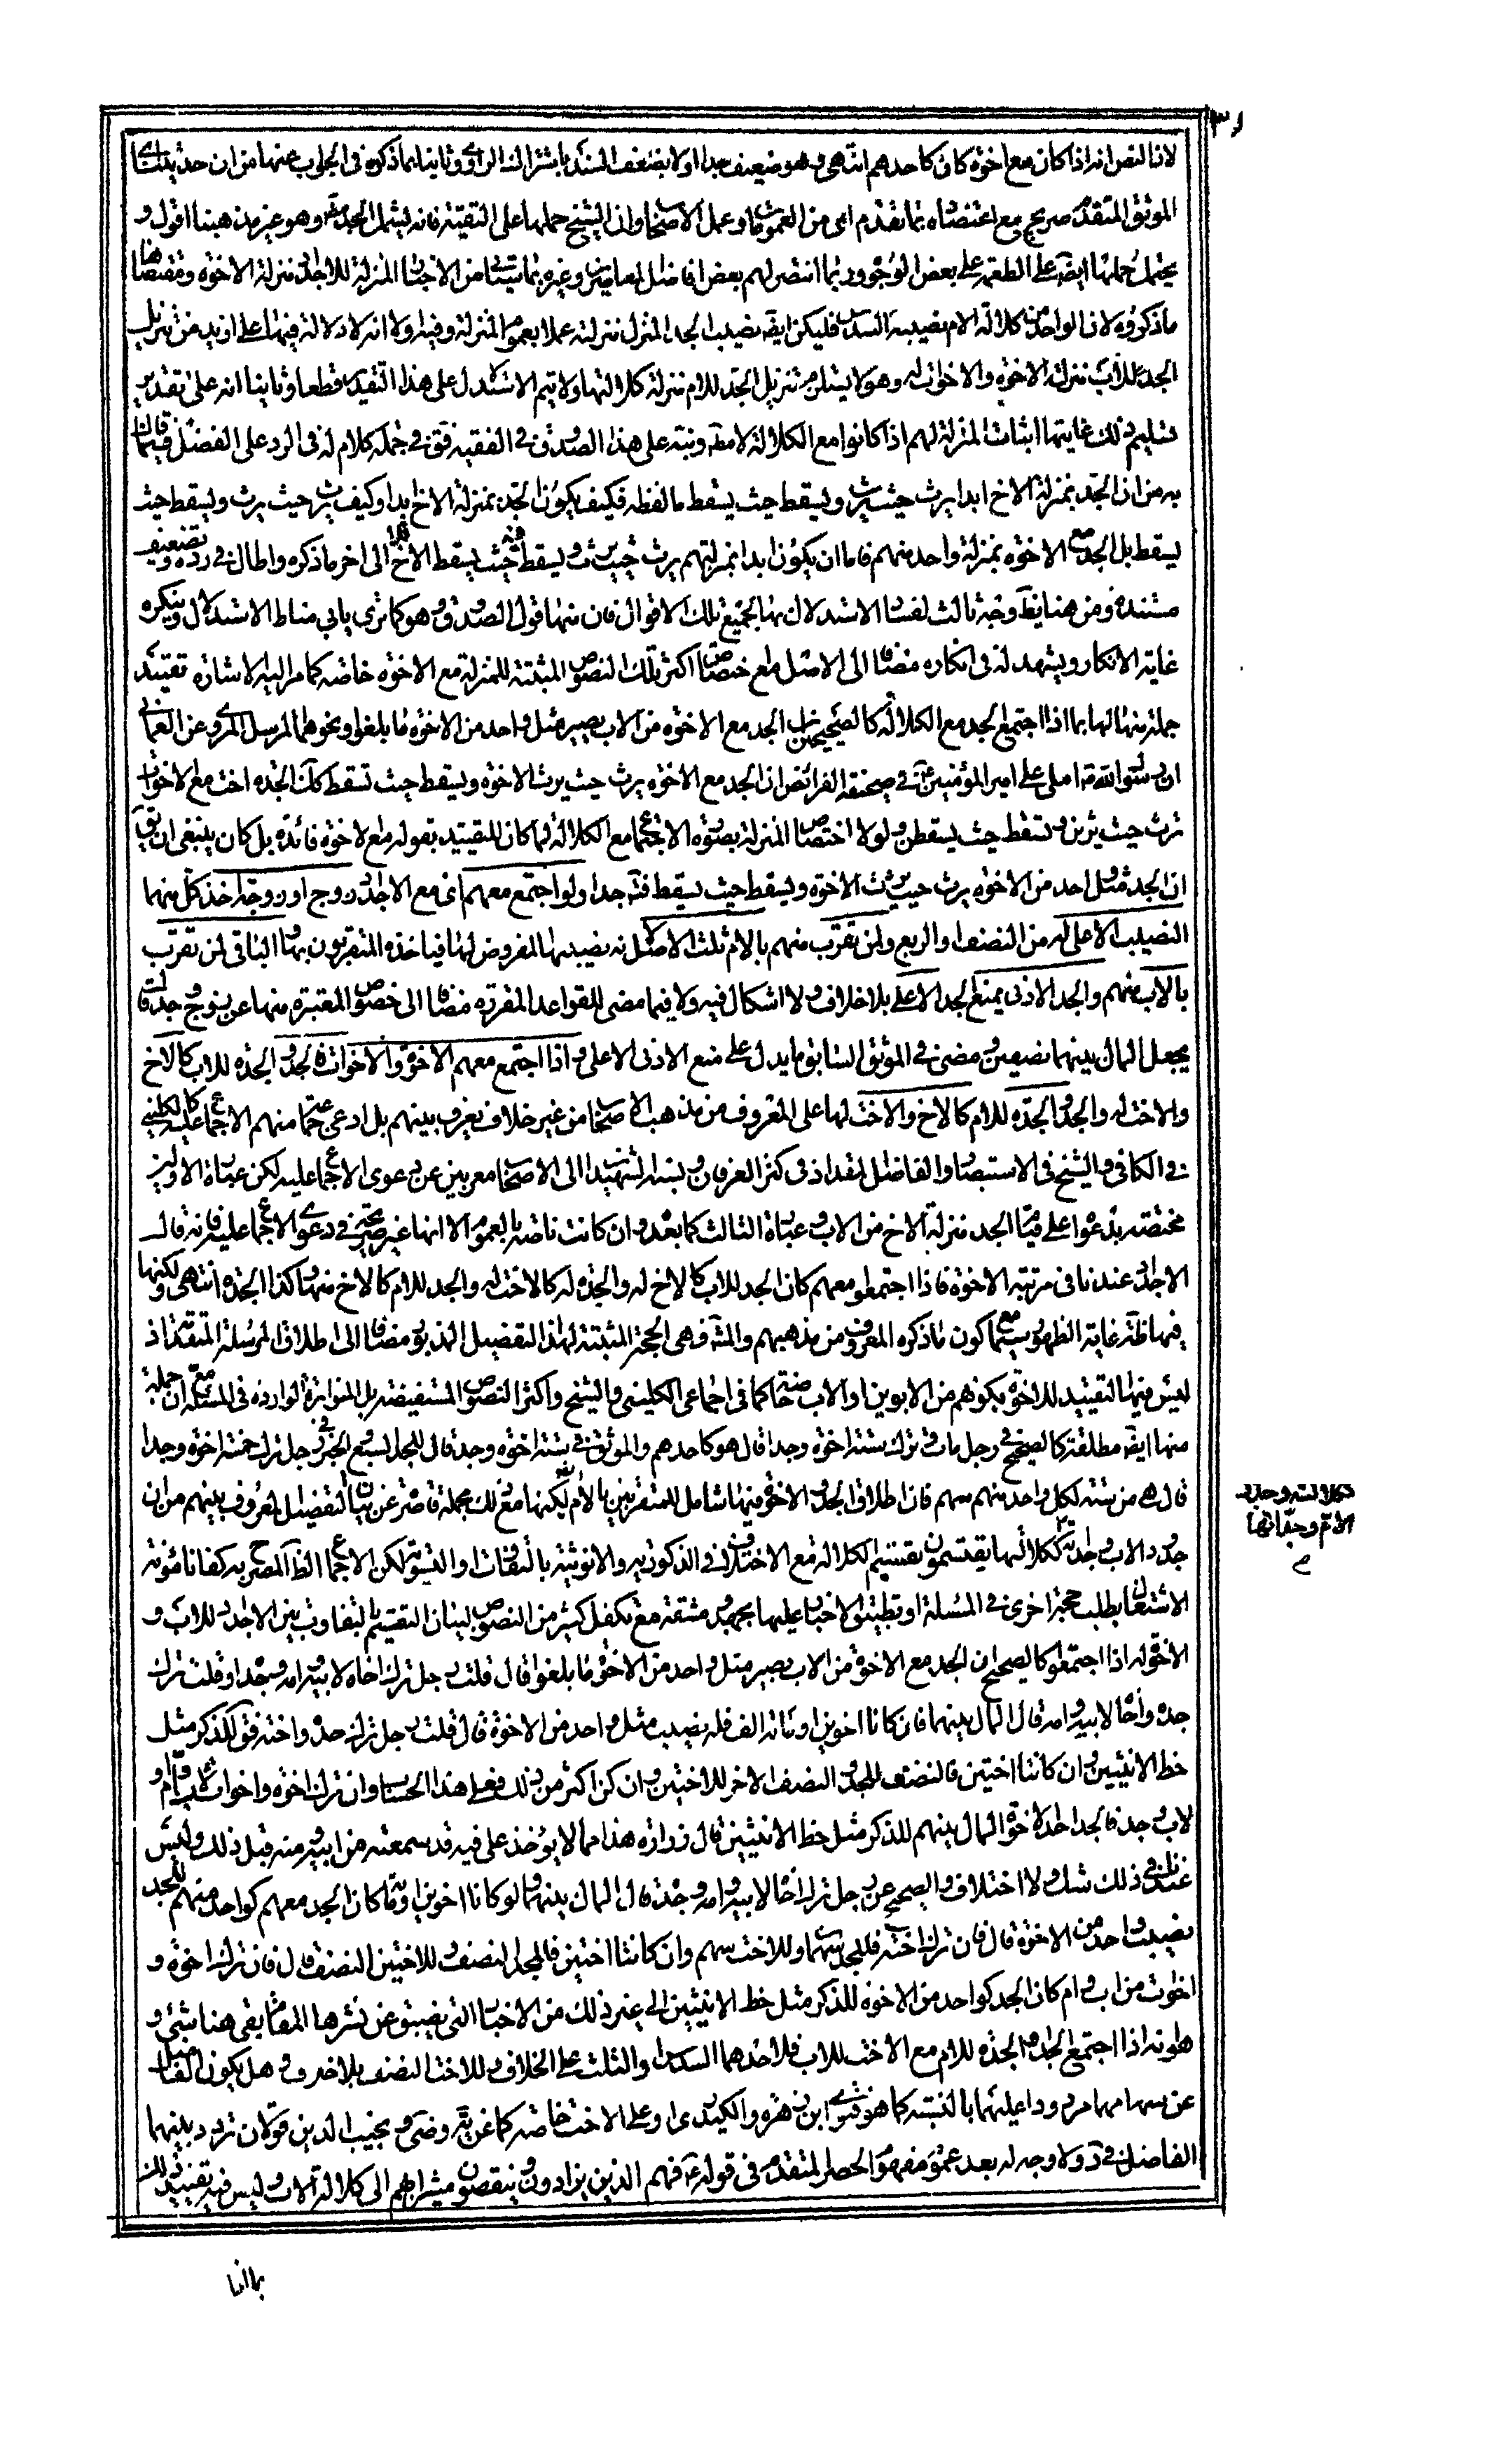 لان النص انه اذا كان مع اخوة كان كاحدهم انتهى وهو ضعيف جدا اولا بضعف السند باشتراك الراوي وثانيا بما ذكره في الجواب عنها من ان حديثنا
الموثق المتقدم صريح مع اعتضاده بما تقدم اى من العمومات وعمل الاصحاب وان الشيخ حملها على التقية فانه ليشمل الجد وهو غير مذهبنا اقول و
يحتمل حملها ايضا على الطعمة على بعض الوجوه وربما انتصر لهم بعض افاضل المعاصرين وغيره بما من الاخبار المنزلة للاجداد منزلة الاخوة ومقتضاها
ما ذكروه لان الواحد من كلالة الام نصيبه السدس فليكن ايضا نصيب الجد المنزل منزلته عملا بعموم المنزلة وفيه اولا انه لا دلالة فيها على ازيد من تنزيل
الجد للاب منزلة الاخوة والاخوات له وهو لا يستلزم تنزيل الجد للام منزلة كلالتها ولا يتم الاستدلال على هذا التقدير قطعا وثانيا انه على تقدير
تسليم ذلك غايتها اثبات المنزلة لهم اذا كانوا مع الكلالة لا مطلقا ونبه على هذا الصدوق في الفقيه في جملة كلام له في الرد على الفضل فيما قال
به من ان الجد بمنزلة الاخ ابدا يرث حيث يرث ويسقط حيث يسقط ما لفظه فكيف يكون الجد بمنزلة الاخ ابدا وكيف يرث حيث يرث ويسقط حيث
يسقط بل الجد مع الاخوة بمنزلة واحد منهم فاما ان يكون ابدا بمنزلتهم يرث حيث يرث ويسقط حيث يسقط الاخ فلا الى اخر ما ذكره واطال في رده وتضعيف
مستنده ومن هنا يظهر وجه ثالث لفساد الاستدلال بها لجميع تلك الاقوال فان منها قول الصدوق وهو كما ترى يابى مناط الاستدلال وينكره
غاية الانكار ويشهد له في انكاره مضافا الى الاصل مع اختصاص اكثر تلك النصوص المثبتة للمنزلة مع الاخوة خاصة كما مر اليه الاشارة تقييد
جملة منها لها بما اذا اجتمع الجد مع الكلالة كالصحيحين ان الجد مع الاخوة من الاب يصير مثل واحد من الاخوة ما بلغوا ونحوهما المرسل المروي عن العماني
ان رسول الله املى على امير المؤمنين في صحيفة الفرائض ان الجد مع الاخوة يرث حيث يرث الاخوة ويسقط حيث تسقط وكذلك الجدة اخت مع الاخوات
ترث حيث يرثن وتسقط حيث يسقطن ولولا اختصاص المنزلة بصورة الاجتماع مع الكلالة لما كان للتقييد بقوله مع الاخوة فائدة بل كان ينبغي ان يقال
ان الجد مثل واحد من الاخوة يرث حيث يرث الاخوة ويسقط حيث يسقط جدا ولو اجتمع معهم اى مع الاجداد زوج او زوجة اخذ كل منهما
النصيب الاعلى له من النصف او الربع ولمن تقرب منهم بالام ثلث الاصل لانه نصيبها المفروض لها فياخذه المتقربون بها والباقى لمن تقرب
بالاب منهم والجد الادنى يمنع الجد الاعلى بلا خلاف ولا اشكال فيه ولا فيما مضى للقواعد المقررة مضافا الى خصوص المعتبرة منها عن زوج وجد قال
يجعل المال بينهما نصفين ومضى في الموثق السابق ما يدل على منع الادنى الاعلى واذا اجتمع معهم الاخوة والاخوات فالجد والجدة للاب كالاخ
والاخت له والجد والجدة للام كالاخ والاخت لها على المعروف من مذهب الاصحاب من غير خلاف يعرف بينهم بل ادعى جماعة منهم الاجماع عليه كالكليني
في الكافي والشيخ في الاستبصار والفاضل المقداد في كنز العرفان ونسبه الشهيد الى الاصحاب معربين عن دعوى الاجماع عليه لكن عبارة الاولين
مختصة بدعواه على قيام الجد منزلة الاخ من الاب وعبارة الثالث كما بعده وان كانت ناصة بالعموم الا انها غير صريحة في دعوى الاجماع عليه فانه قال
الاجداد عندنا في مرتبة الاخوة فاذا اجتمعوا معهم كان الجد للاب كالاخ له والجدة له كالاخت له والجد للام كالاخ منها وكذا الجدة انتهى ولكنها
فيها ظاهرة غاية الظهور مع كون ما ذكره المعروف من مذهبهم فهي الحجة المثبتة لهذا التفصيل المذكور مضافا الى اطلاق المرسلة المتقدمة اذ
ليس فيها التقييد للاخوة بكونهم من الابوين او الاب خاصة كما في اجماعى الكليني والشيخ واكثر النصوص المستفيضة بل المتواترة الواردة في المسئلة مع ان جملة
منها ايضا مطلقة كالصحيح في رجل مات وترك ستة اخوة وجدا قال هو كاحدهم والموثق في ستة اخوة وجد قال للجد السبع والخبر في رجل ترك خمسة اخوة وجدا
قال هى من ستة لكل واحد منهم سهم فان اطلاق الجد والاخوة فيها شامل للمتقربين بالام لكنها مع ذلك مجملة قاصرة عن بيان التفصيل المعروف بينهم من ان
جدود الاب وجداته ككلالتها يقتسمون تقسيم الكلالة مع الاختلاف في الذكورية والانوثية بالتفاوت او التسوية لكن الاجماع الظاهر المصرح به كفانا مؤنة
الاشتغال بطلب حجة اخرى في المسئلة او تطبيق الاخبار عليها بجهد ومشقة مع تكفل كثير من النصوص لبيان التقسيم بالتفاوت بين الاجداد للاب و
الاخوة له اذا اجتمعوا كالصحيح ان الجد مع الاخوة من الاب يصير مثل واحد من الاخوة ما بلغوا قال قلت رجل ترك اخاه لابيه وامه وجدا او قلت ترك
جده واخا لابيه وامه قال المال بينهما فان كانا اخوين او مائة الف فله نصيب مثل واحد من الاخوة قال قلت رجل ترك جده واخته فقال للذكر مثل
حظ الانثيين وان كانتا اختين فالنصف للجد والنصف الاخر للاختين وان كن اكثر من ذلك فعلى هذا الحساب وان ترك اخوة واخوات لاب وام او
لاب وجد فالجد احد الاخوة المال بينهم للذكر مثل حظ الانثيين قال زرارة هذا مما لا يؤخذ على فيه قد سمعته من ابيه ومنه قبل ذلك وليس
عندنا في ذلك شك ولا اختلاف والصحيح عن رجل ترك اخا لابيه وامه وجده قال المال بينهما ولو كانا اخوين او مائة كان الجد معهم كواحد منهم للجد
نصيب واحد من الاخوة قال فان ترك اخته فللجد سهمان وللاخت سهم وان كانتا اختين فللجد النصف وللاختين النصف قال فان ترك اخوة و
اخوات من اب وام كان الجد كواحد من الاخوة للذكر مثل حظ الانثيين الى غير ذلك من الاخبار التي يضيق عن نشرها المقام بقى هنا شئ و
هو انه اذا اجتمع الجد او الجدة للام مع الاخت للاب فلاحدهما السدس او الثلث على الخلاف وللاخت النصف بلا خلاف وهل يكون الفاضل
عن سهامهما مردودا عليهما بالنسبة كما هو خيرة ابن زهرة والكيدرى او على الاخت خاصة كما عن وضى و نجيب الدين قولان تردد بينهما
الفاضل في د ولا وجه له بعد عموم مفهوم الحصر المتقدم في قوله ع فهم الذين يزادون وينقصون مشيرا بهم الى كلالة الاب وليس فيه تقييد للـ
ككلالته وجدود
الام وجداتها
بما اذا